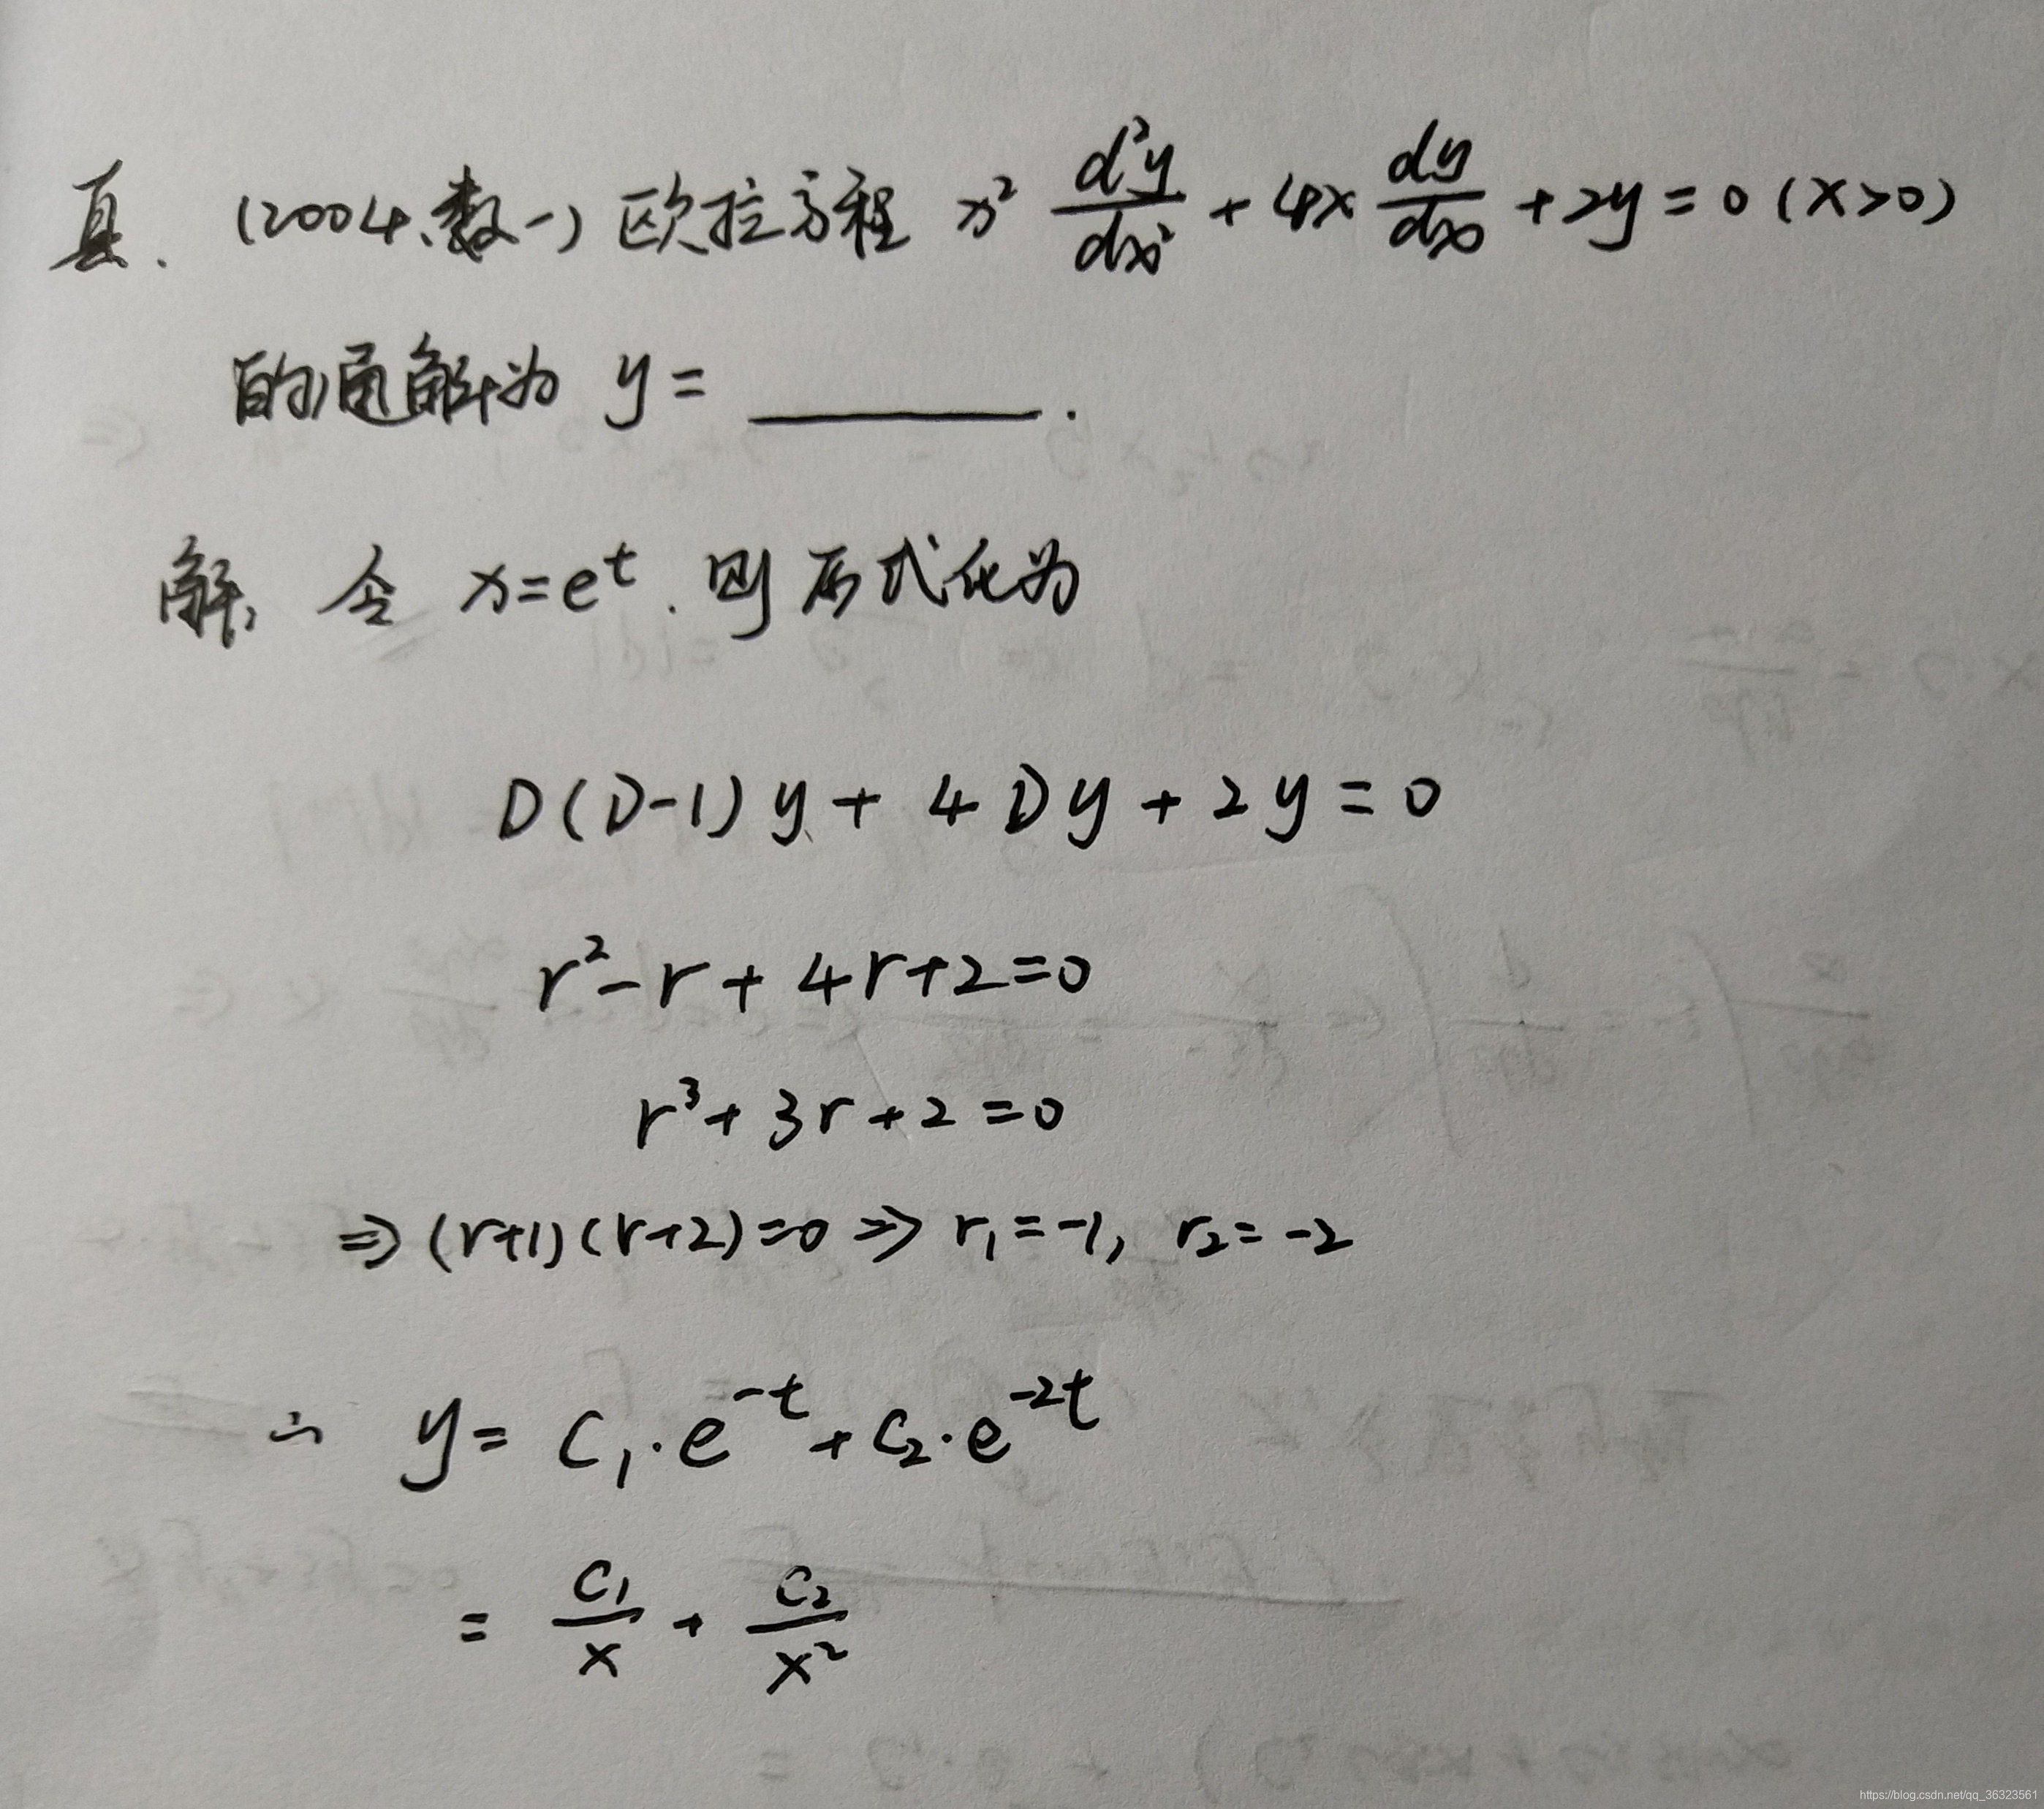 真. (2004、数一) 欧拉方程 x² d²y/dx² + 4x dy/dx + 2y = 0 (x>0)
的通解为 y = ______.
解: 令 x=e^t. 则原式化为
D(D-1)y + 4Dy + 2y = 0
r²-r+4r+2=0
r³+3r+2=0
⇒(r+1)(r+2)=0 ⇒ r₁=-1, r₂=-2
∴ y= C₁·e^{-t}+C₂·e^{-2t}
= C₁/x + C₂/x²
https://blog.csdn.net/qq_36323561